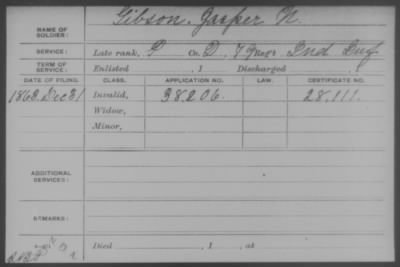 Gibson, Jasper N.
NAME OF SOLDIER:
SERVICE: Late rank, P Co. D, 79 Reg't Ind Inf
TERM OF SERVICE: Enlisted , 1 Discharged , 1
DATE OF FILING. CLASS. APPLICATION NO. LAW. CERTIFICATE NO.
1863. Dec 31 Invalid, 38206. 28,111.
Widow,
Minor,
ADDITIONAL SERVICES:
REMARKS:
Died , 1 , at